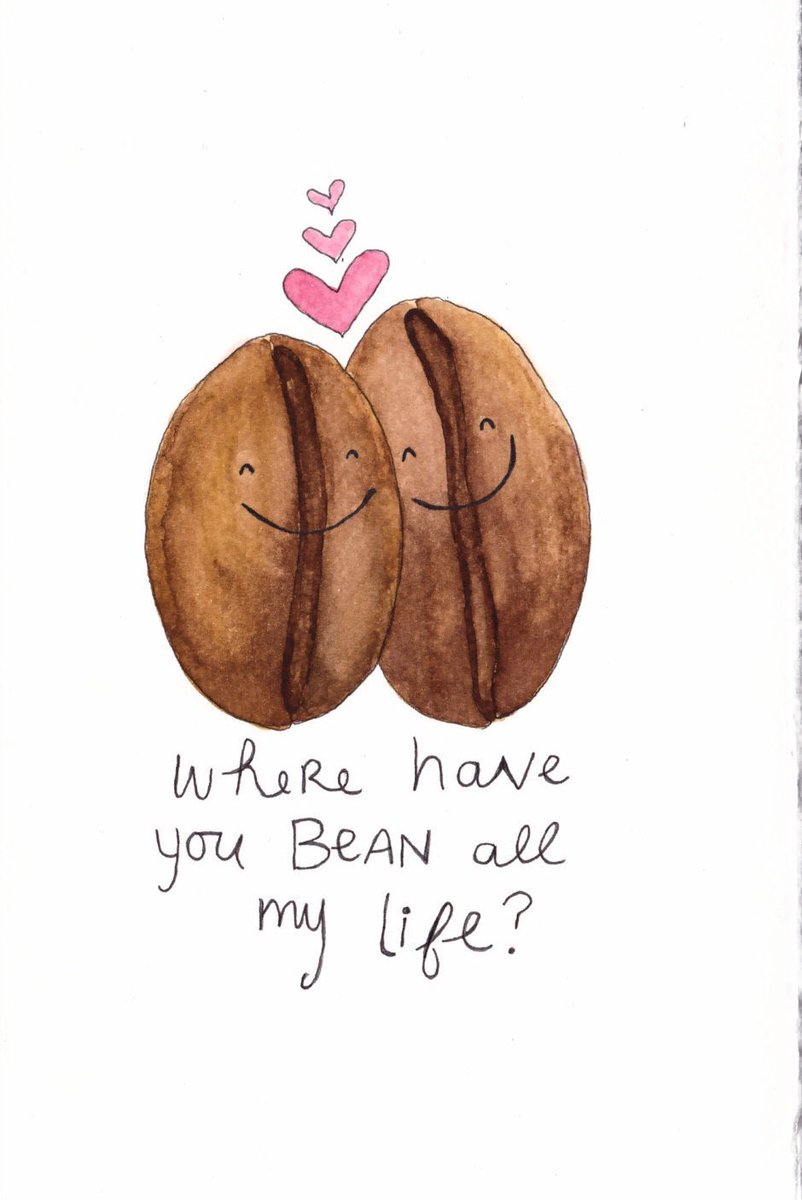 WheRe haVe
you BeAN all
my life?